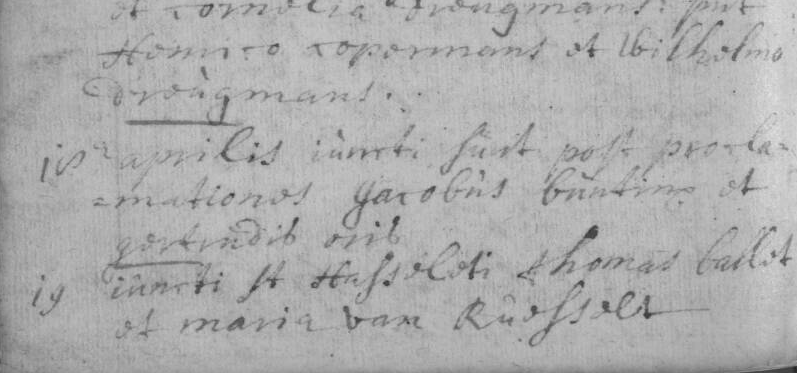 et Cornelia Dreugmans. sūt
Henrico Copermans et Wilhelmo
Dreugmans.
aprilis iuncti sūnt post procla=
=mationes Jacobus buntinx et
gertrudis
19 iuncti st Hasseleti thomas baillet
et maria van Russelt